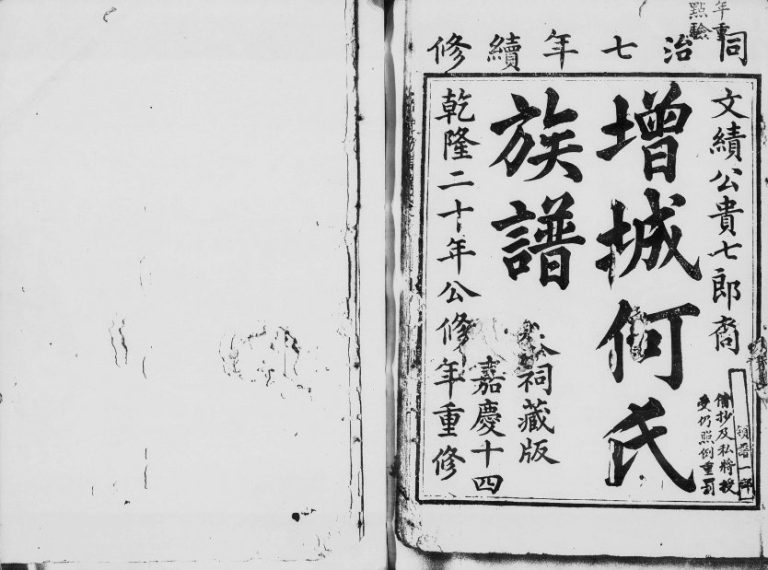 年重
點驗
同治七年續修
文績公貴七郎裔
增城何氏
族譜
祠藏版
乾隆二十年公修
嘉慶十四
年重修
借抄及私將授
受仍照例重罰